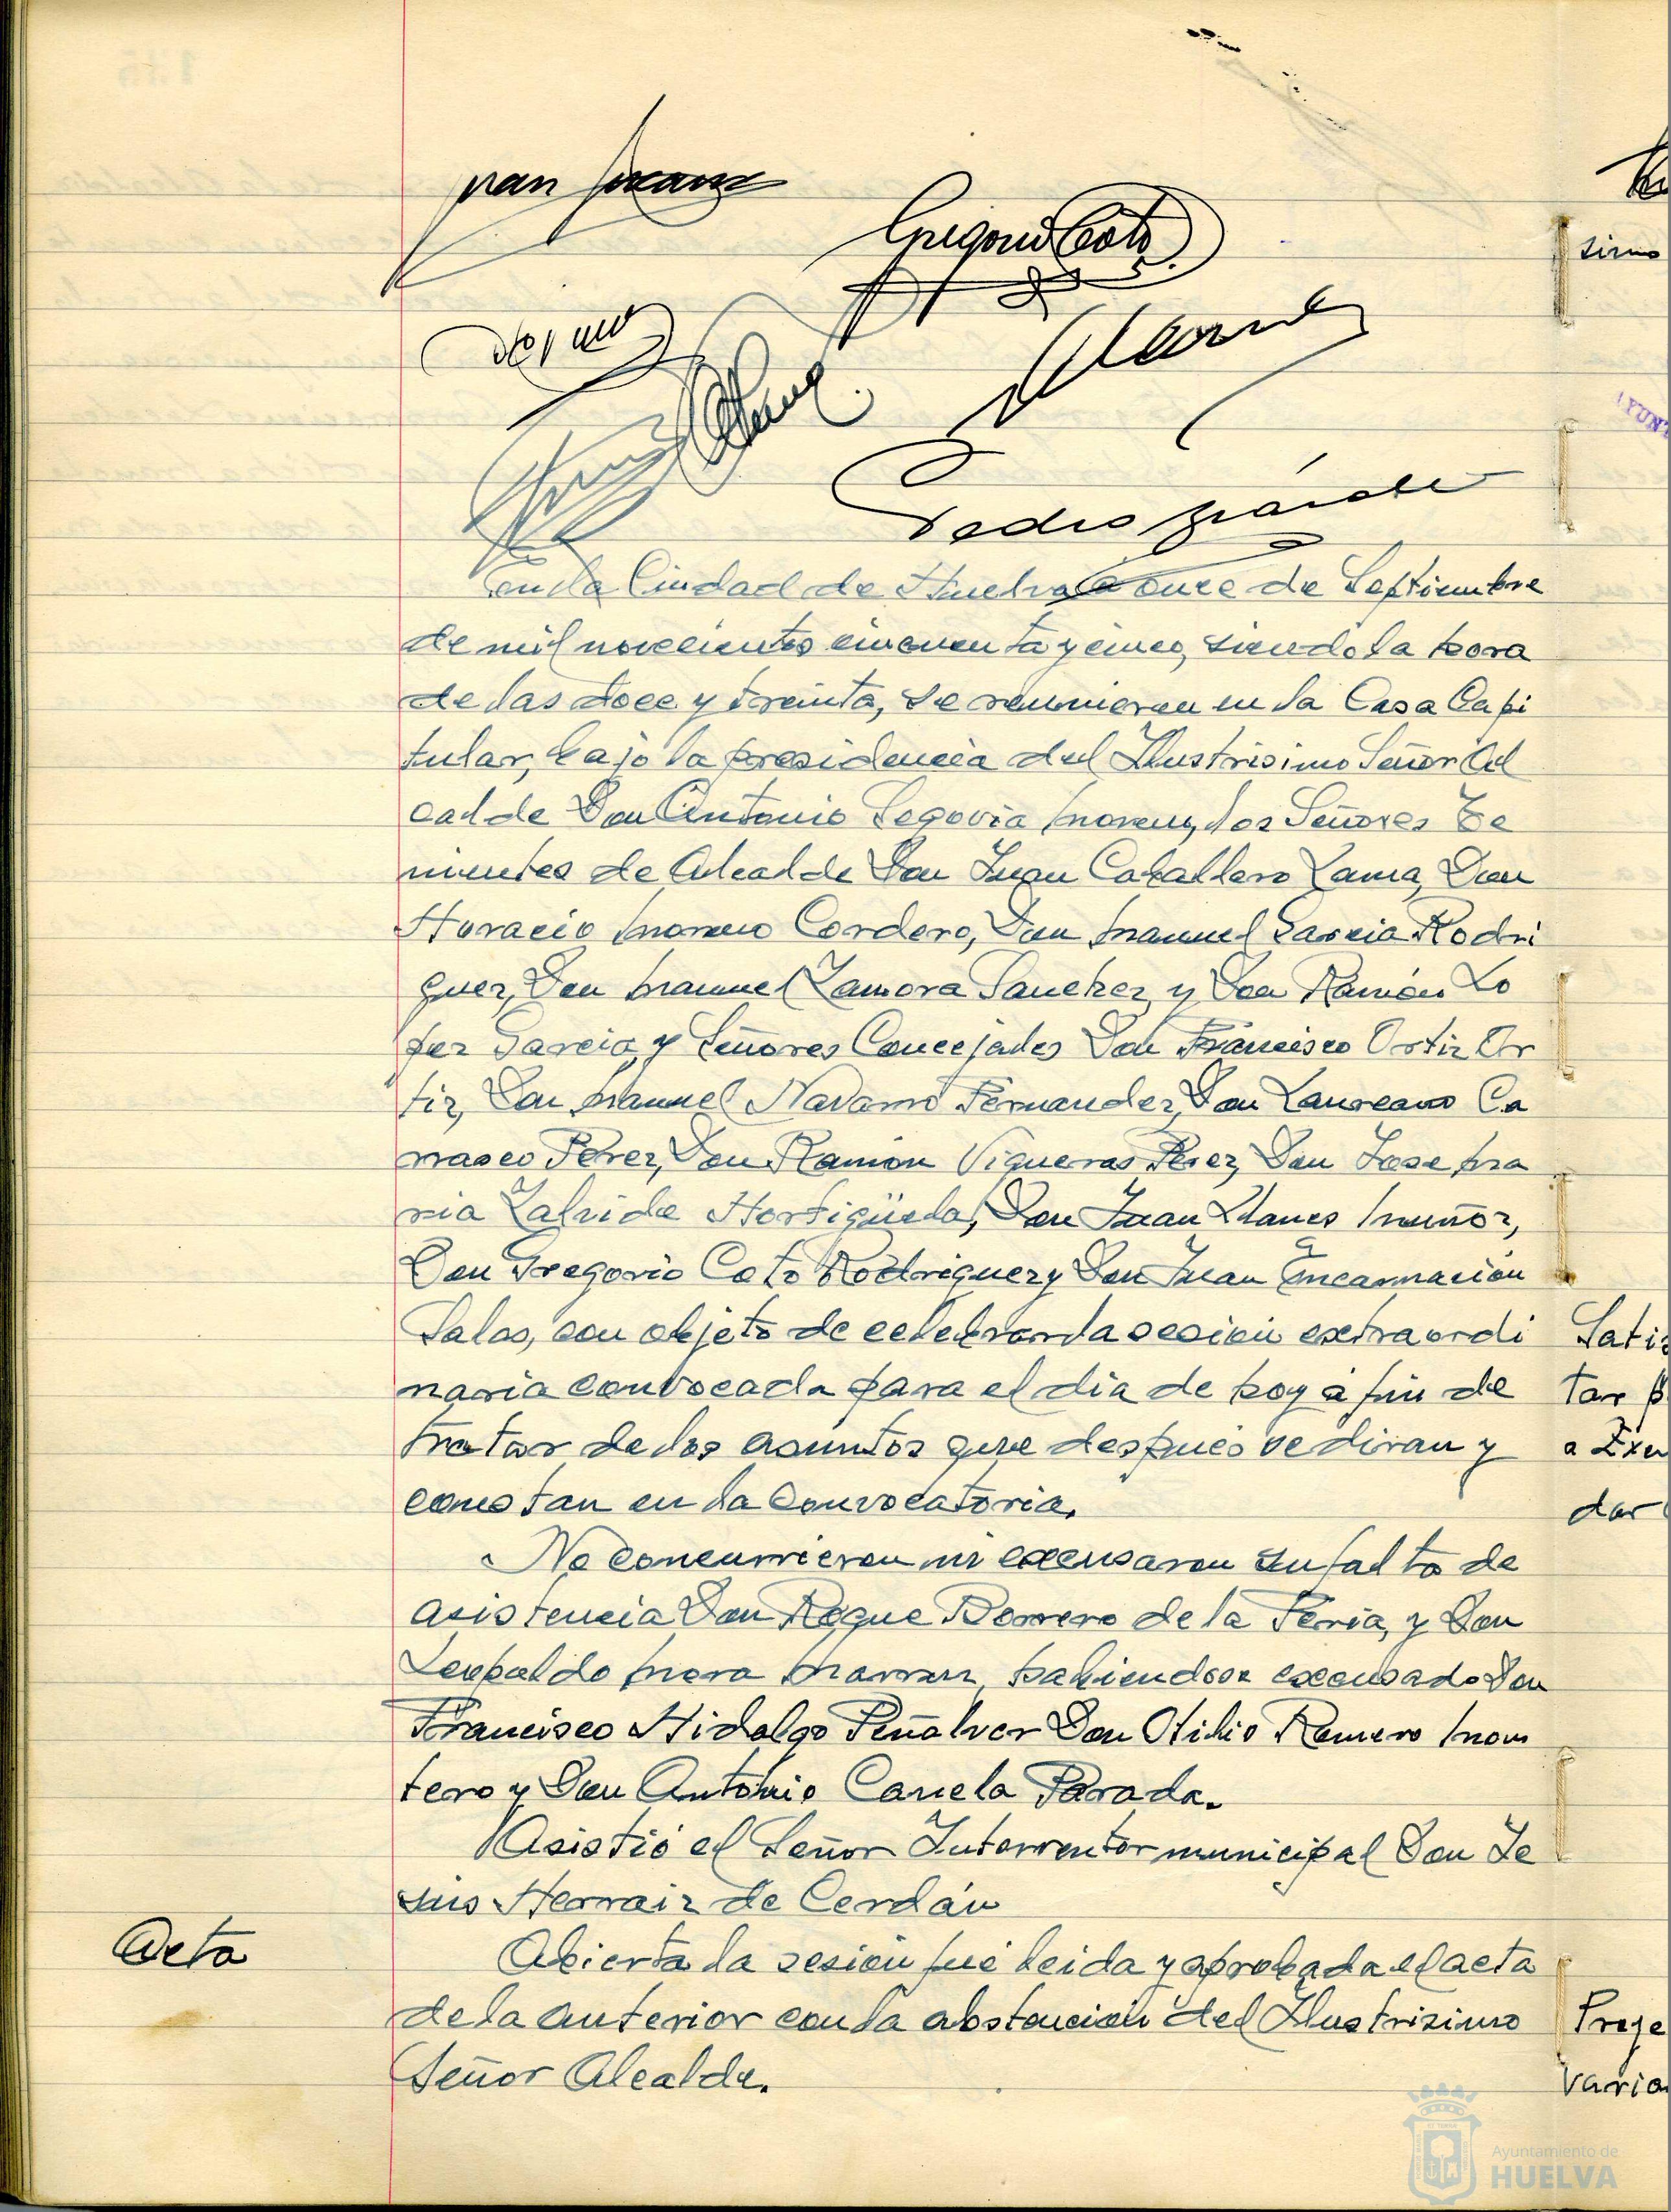 Gregorio Coto
Pedro
En la Ciudad de Huelva a once de Septiembre
de mil novecientos cincuenta y cinco, siendo la hora
de las doce y treinta, se reunieron en la Casa Capi
tular, bajo la presidencia del Ilustrisimo Señor Al
calde Don Antonio Segovia Moreno, los Señores Te
nientes de Alcalde Don Juan Caballero Lama, Don
Horacio Moreno Cordero, Don Manuel Garcia Rodri
guez, Don Manuel Zamora Sanchez y Don Ramón Lo
pez Garcia, y Señores Concejales Don Francisco Ortiz Or
tiz, Don Manuel Navarro Fernandez, Don Laureano Ca
rrasco Perez, Don Ramón Vigueras Perez, Don Jose Ma
ria Zalvide Hortigüela, Don Juan Llanes Muñoz,
Don Gregorio Coto Rodriguez y Don Juan Encarnación
Salas, con objeto de celebrar la sesión extraordi
naria convocada para el dia de hoy a fin de
tratar de los asuntos que después se diran y
constan en la convocatoria.
No concurrieron ni excusaron su falta de
asistencia Don Roque Borrero de la Feria, y Don
Leopoldo Mora habiendose excusado Don
Francisco Hidalgo Peñalver Don Otilio Romero Mon
tero y Don Antonio Canela Parada.
Asistió el Señor Interventor municipal Don Je
sus Herraiz de Cerdán
Acta
Abierta la sesión fué leida y aprobada el acta
de la anterior con la abstención del Ilustrisimo
Señor Alcalde.
simo
YUN
Satis
tar
a Exc
dar
Proye
varia
Ayuntamiento de
HUELVA